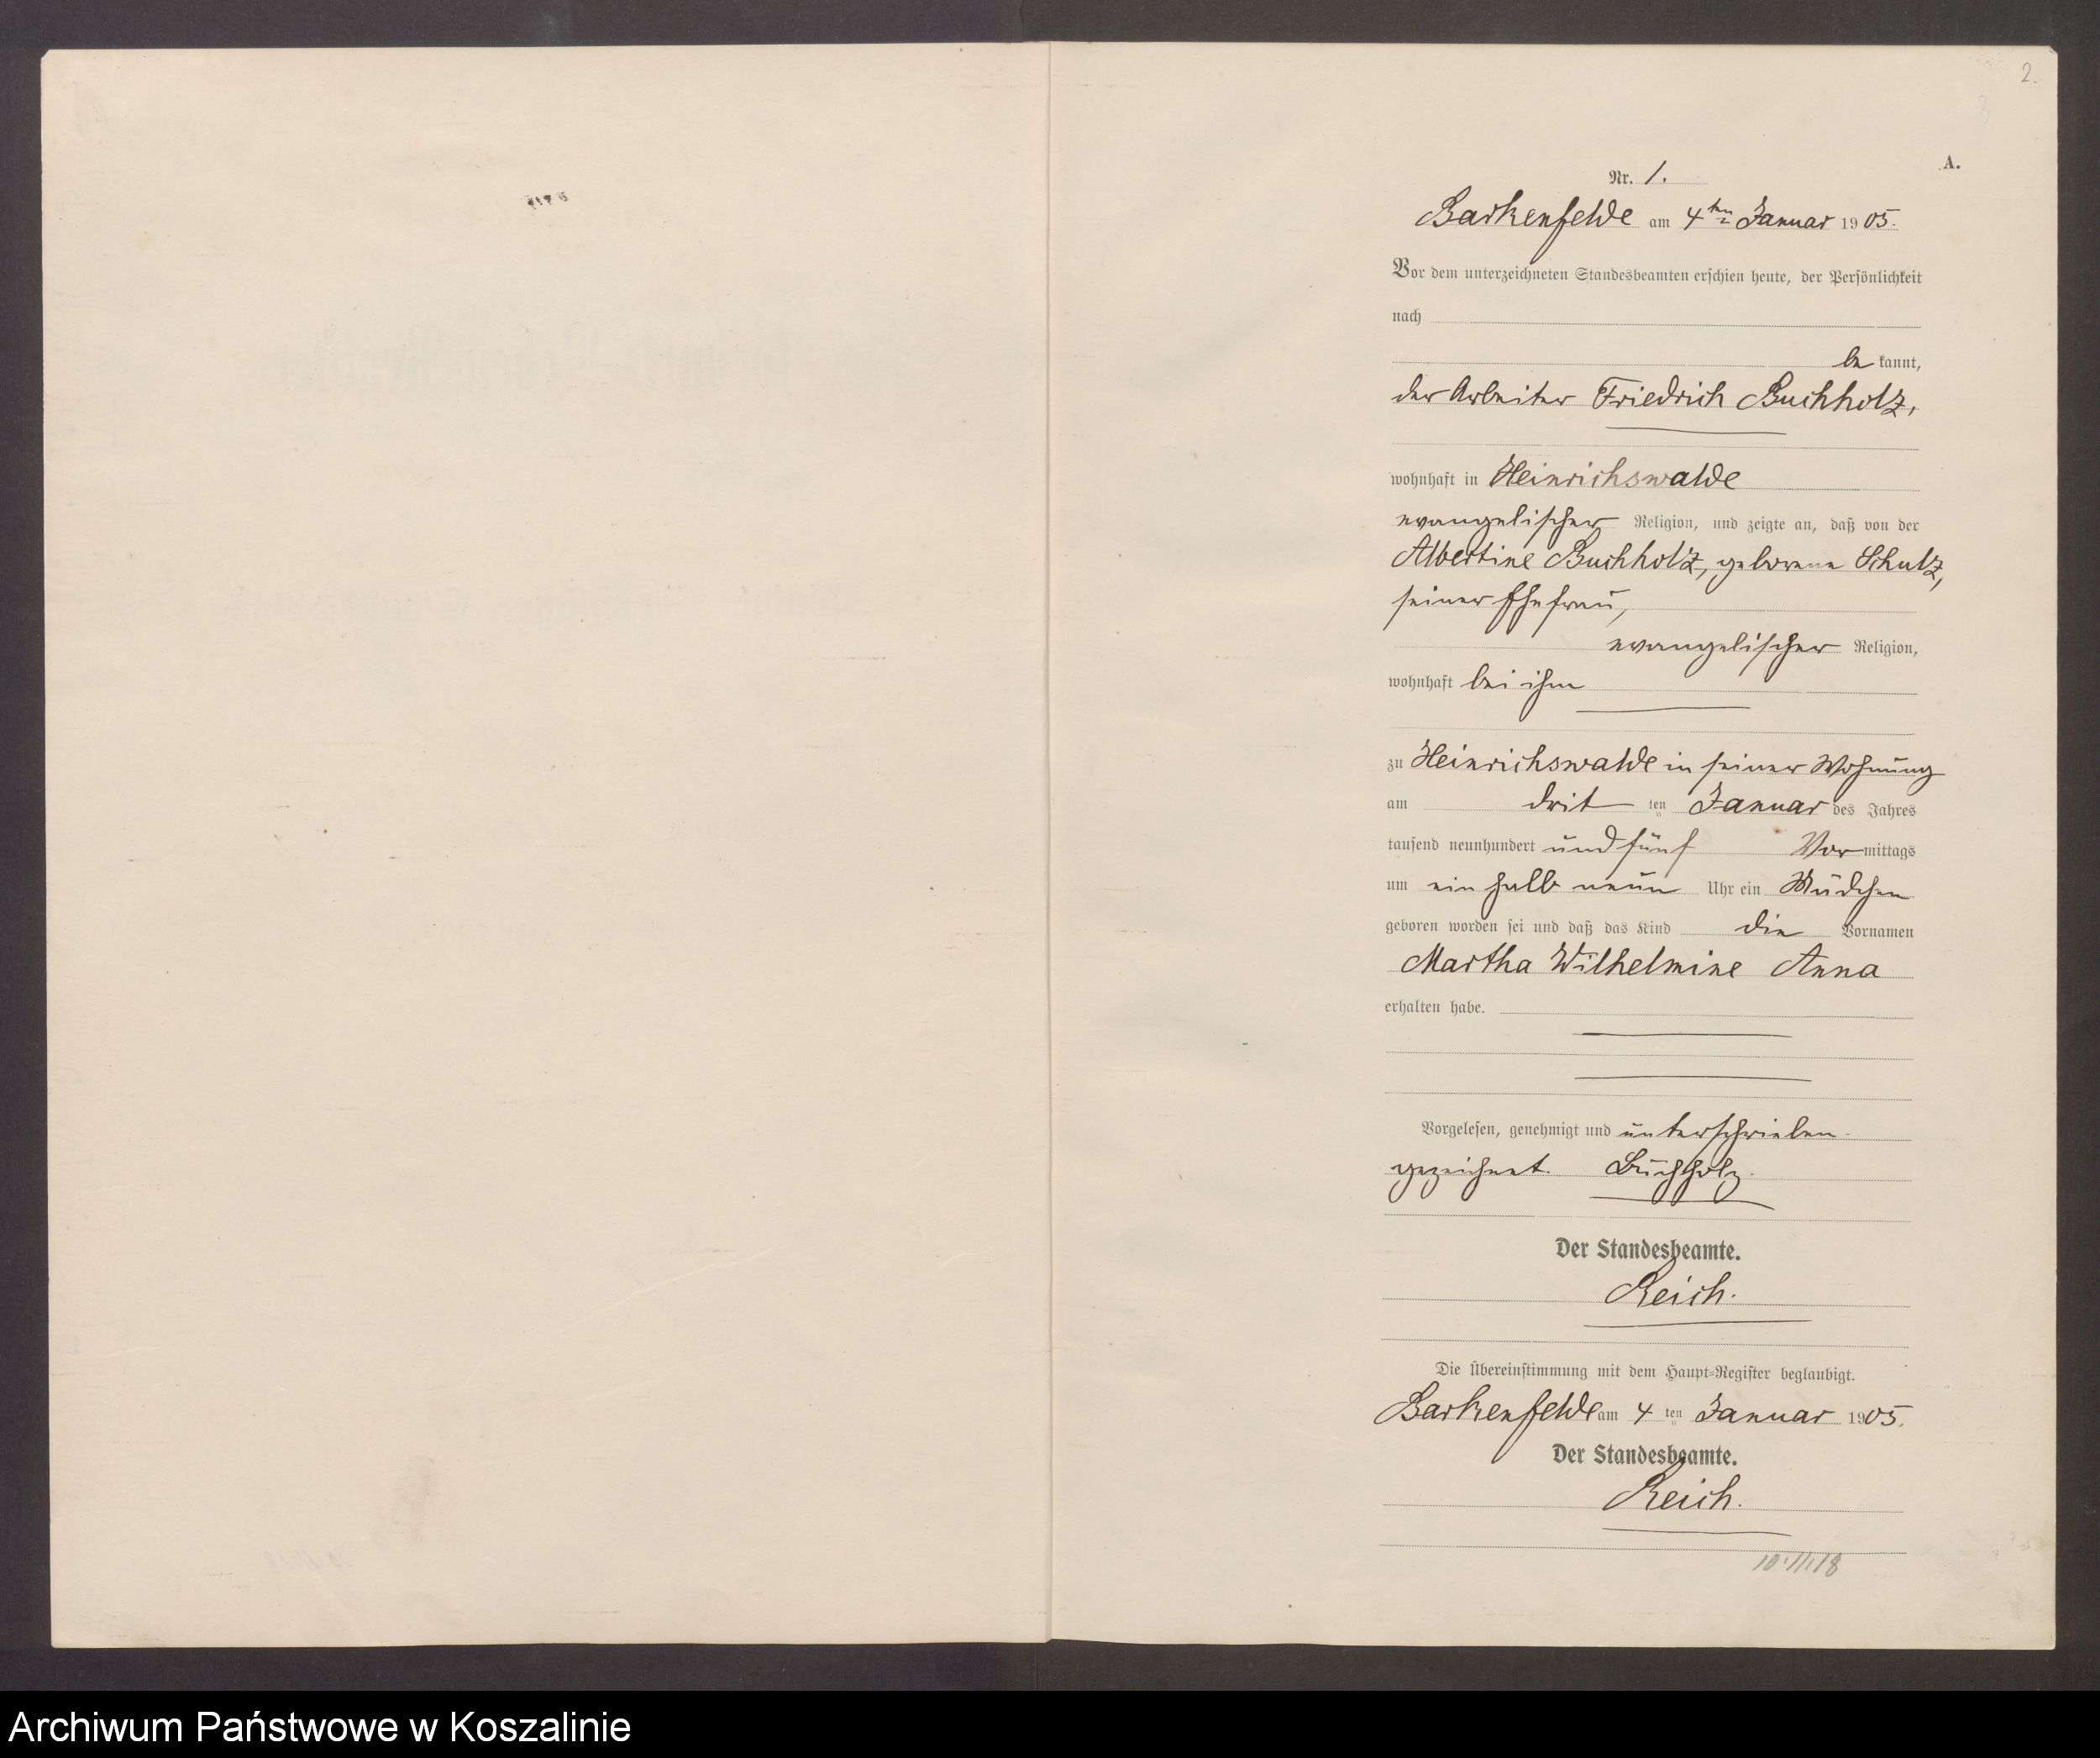 2.
A.
Nr. 1.
Barkenfelde am 4ten Januar 1905.
Vor dem unterzeichneten Standesbeamten erschien heute, der Persönlichkeit
nach
be kannt,
der Arbeiter Friedrich Buchholz,
wohnhaft in Heinrichswalde
evangelischer Religion, und zeigte an, daß von der
Albertine Buchholz, geborene Schulz,
seiner Ehefrau,
evangelischer Religion,
wohnhaft bei ihm
zu Heinrichswalde in seiner Wohnung
am drit ten Januar des Jahres
tausend neunhundert und fünf Vormittags
um ein halb neun Uhr ein Mädchen
geboren worden sei und daß das Kind die Vornamen
Martha Wilhelmine Anna
erhalten habe.
Vorgelesen, genehmigt und unterschrieben.
gezeichnet. Buchholz.
Der Standesbeamte.
Reich.
Die Übereinstimmung mit dem Haupt-Register beglaubigt.
Barkenfelde am 4 ten Januar 1905.
Der Standesbeamte.
Reich.
Archiwum Państwowe w Koszalinie